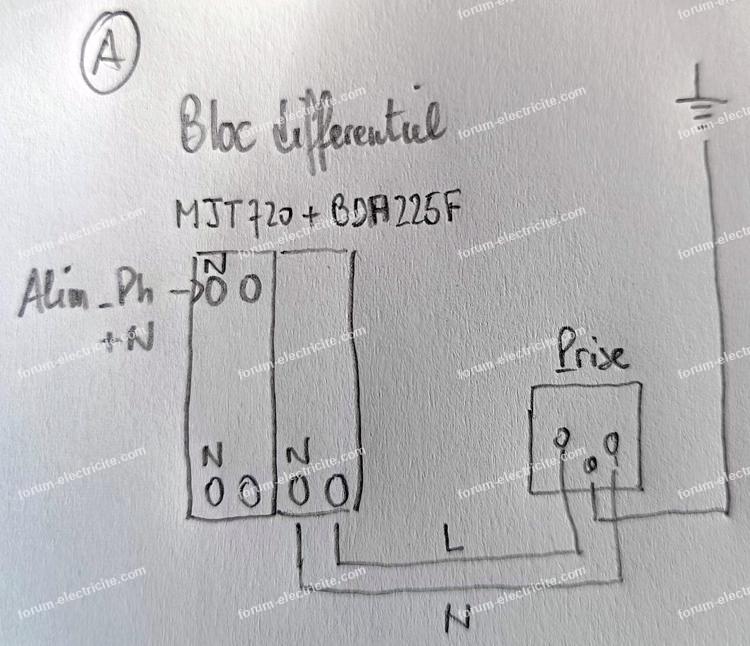 A
Bloc differentiel
MJT720 + BDA225F
Alim_Ph
+N
N
N
N
Prise
L
N
forum-electricite.com